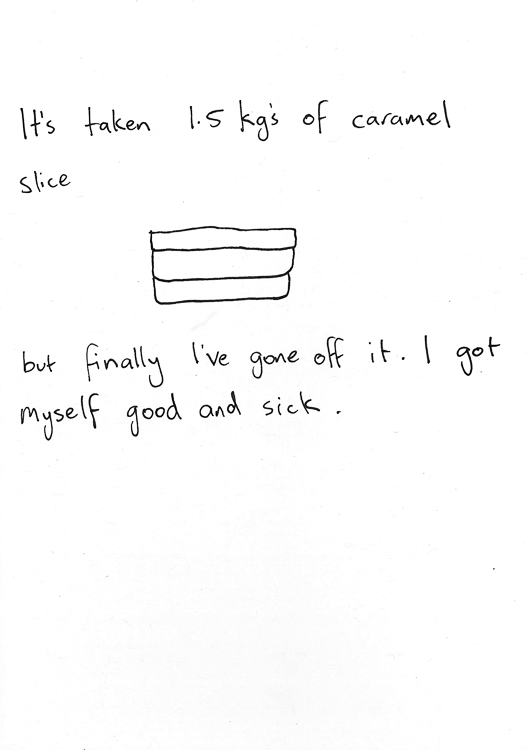 It's taken 1.5 kg's of caramel
slice
but finally I've gone off it. I got
myself good and sick.